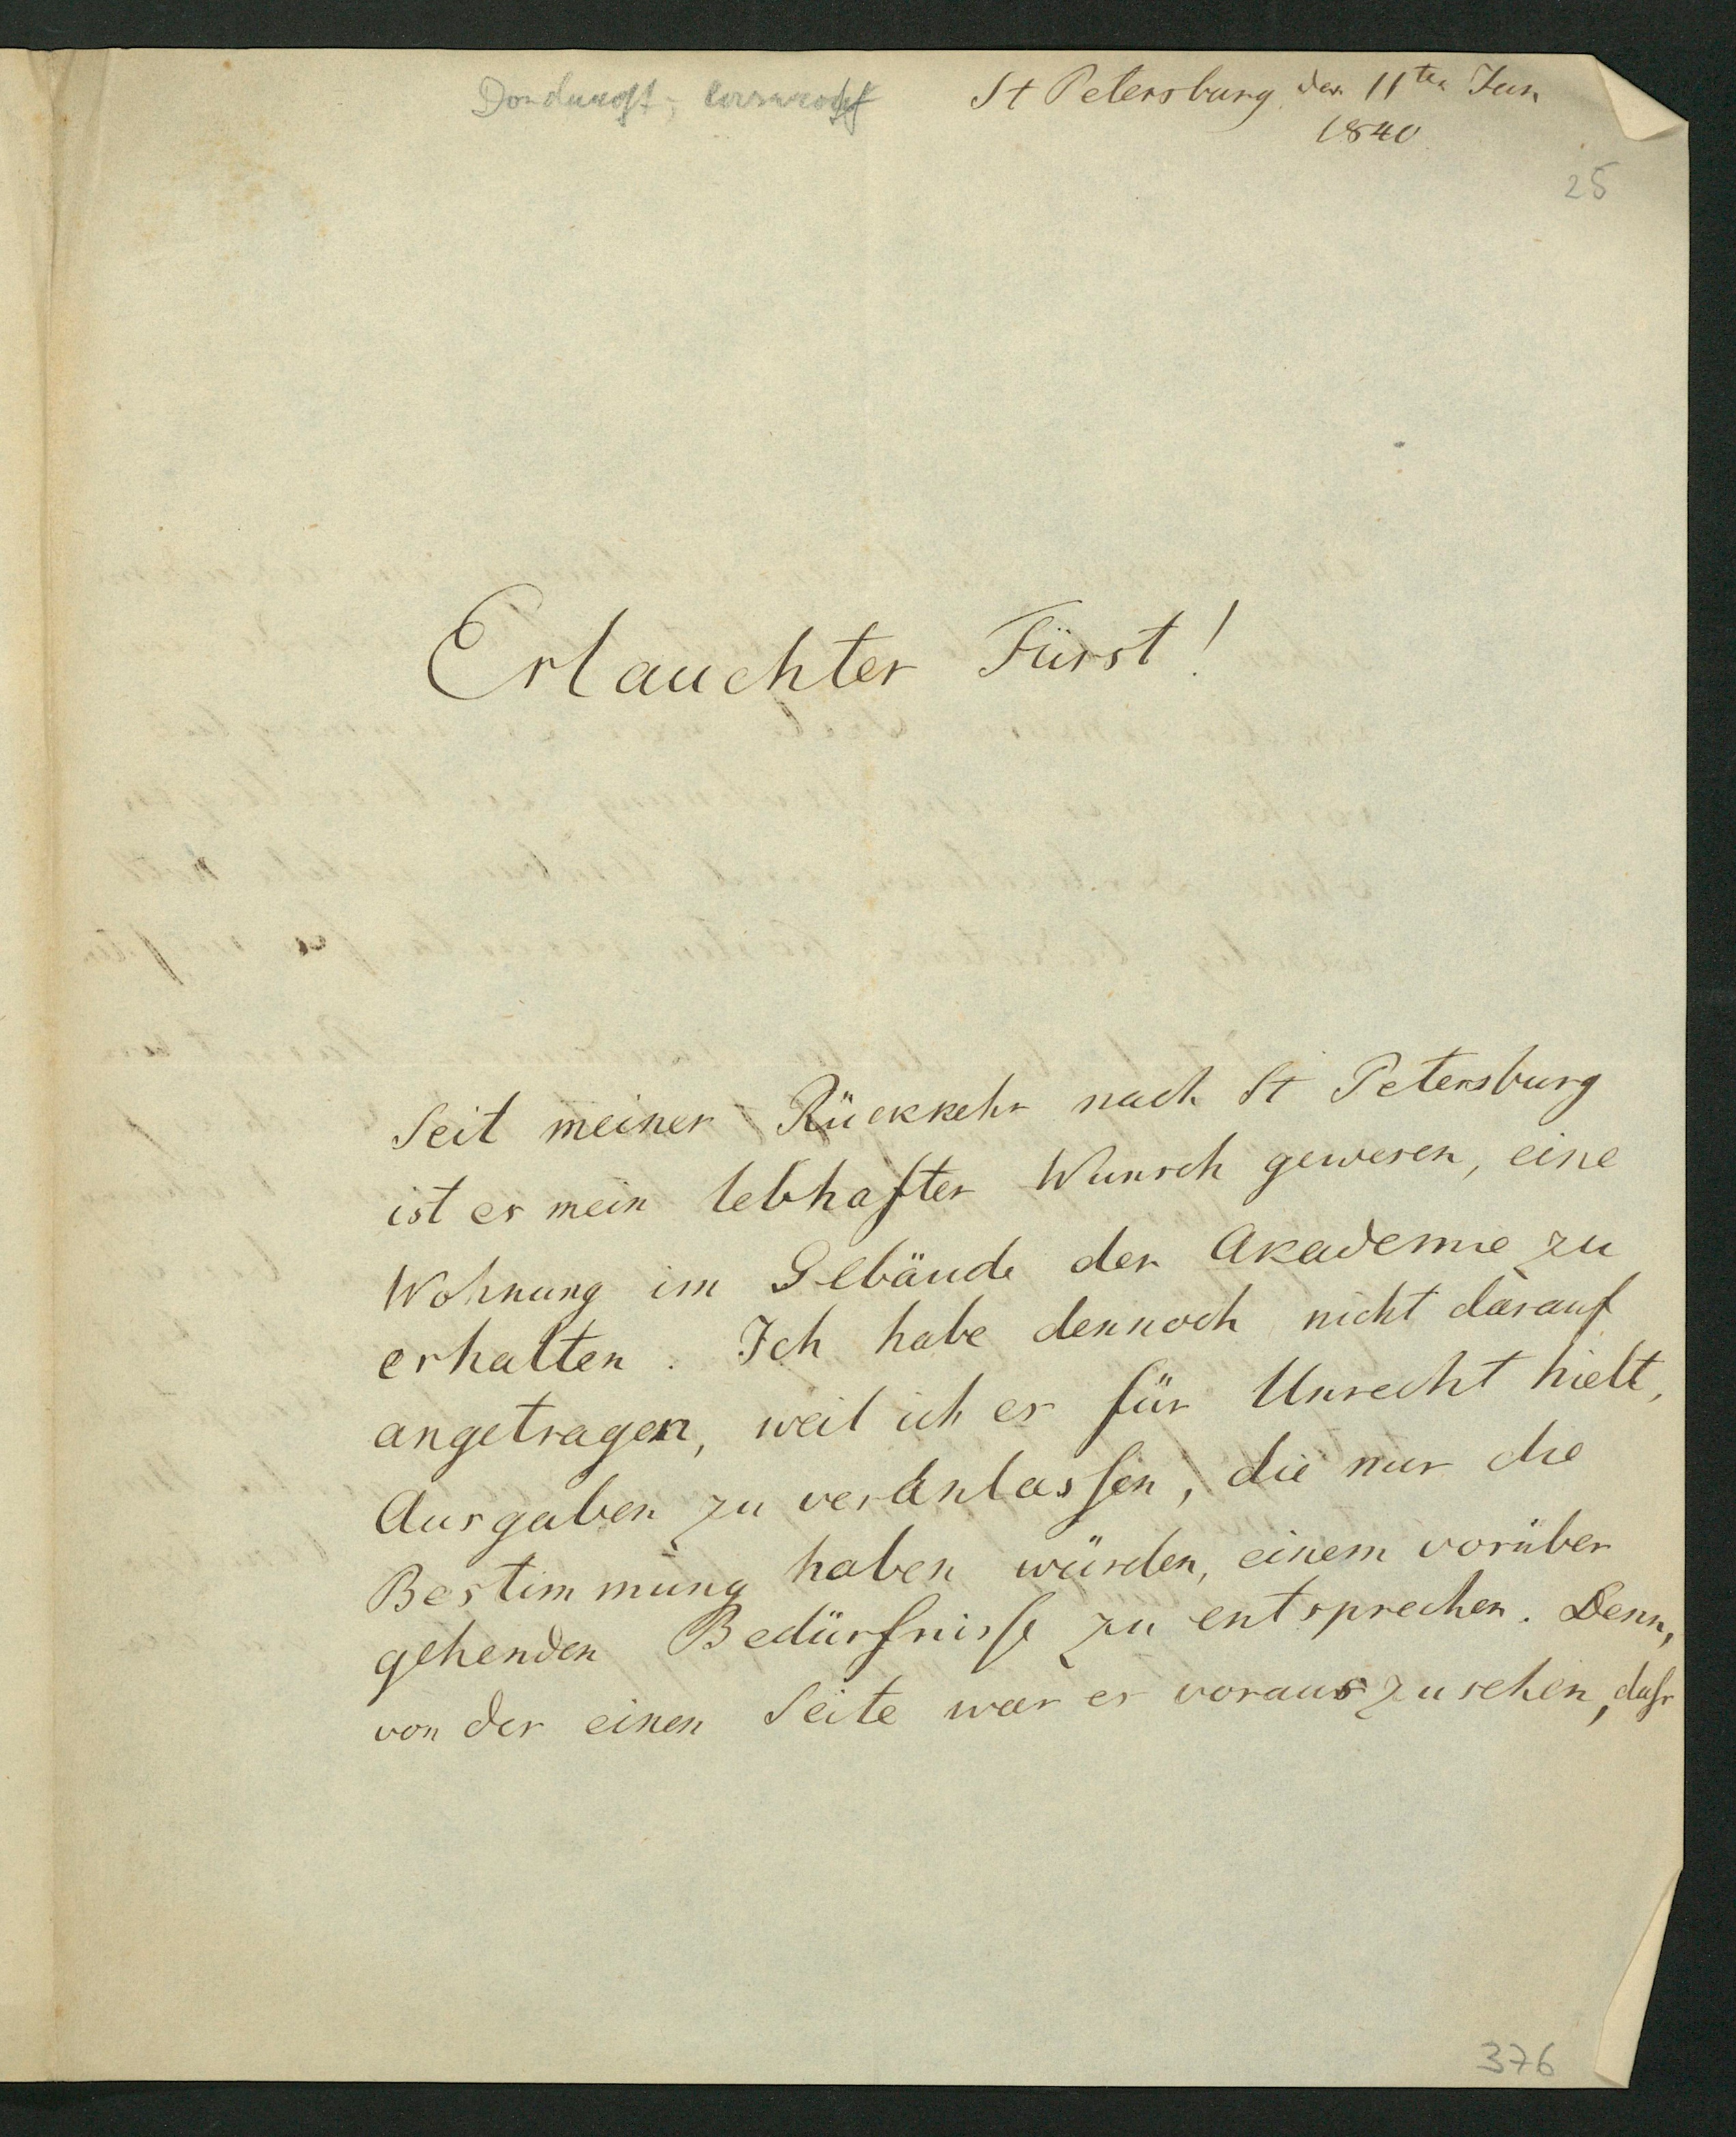 St Petersburg den 11ten Jun
1840
25
Erlauchter Fürst!
Seit meiner Rückkehr nach St Petersburg
ist es mein lebhafter Wunsch gewesen, eine
Wohnung im Gebäude der Akademie zu
erhalten. Ich habe dennoch nicht darauf
angetragen, weil ich es für Unrecht hielt,
Ausgaben zu veranlassen, die nur die
Bestimmung haben würden, einem vorüber
gehenden Bedürfnisse zu entsprechen. Denn,
von der einen Seite war es vorauszusehen, dass
376